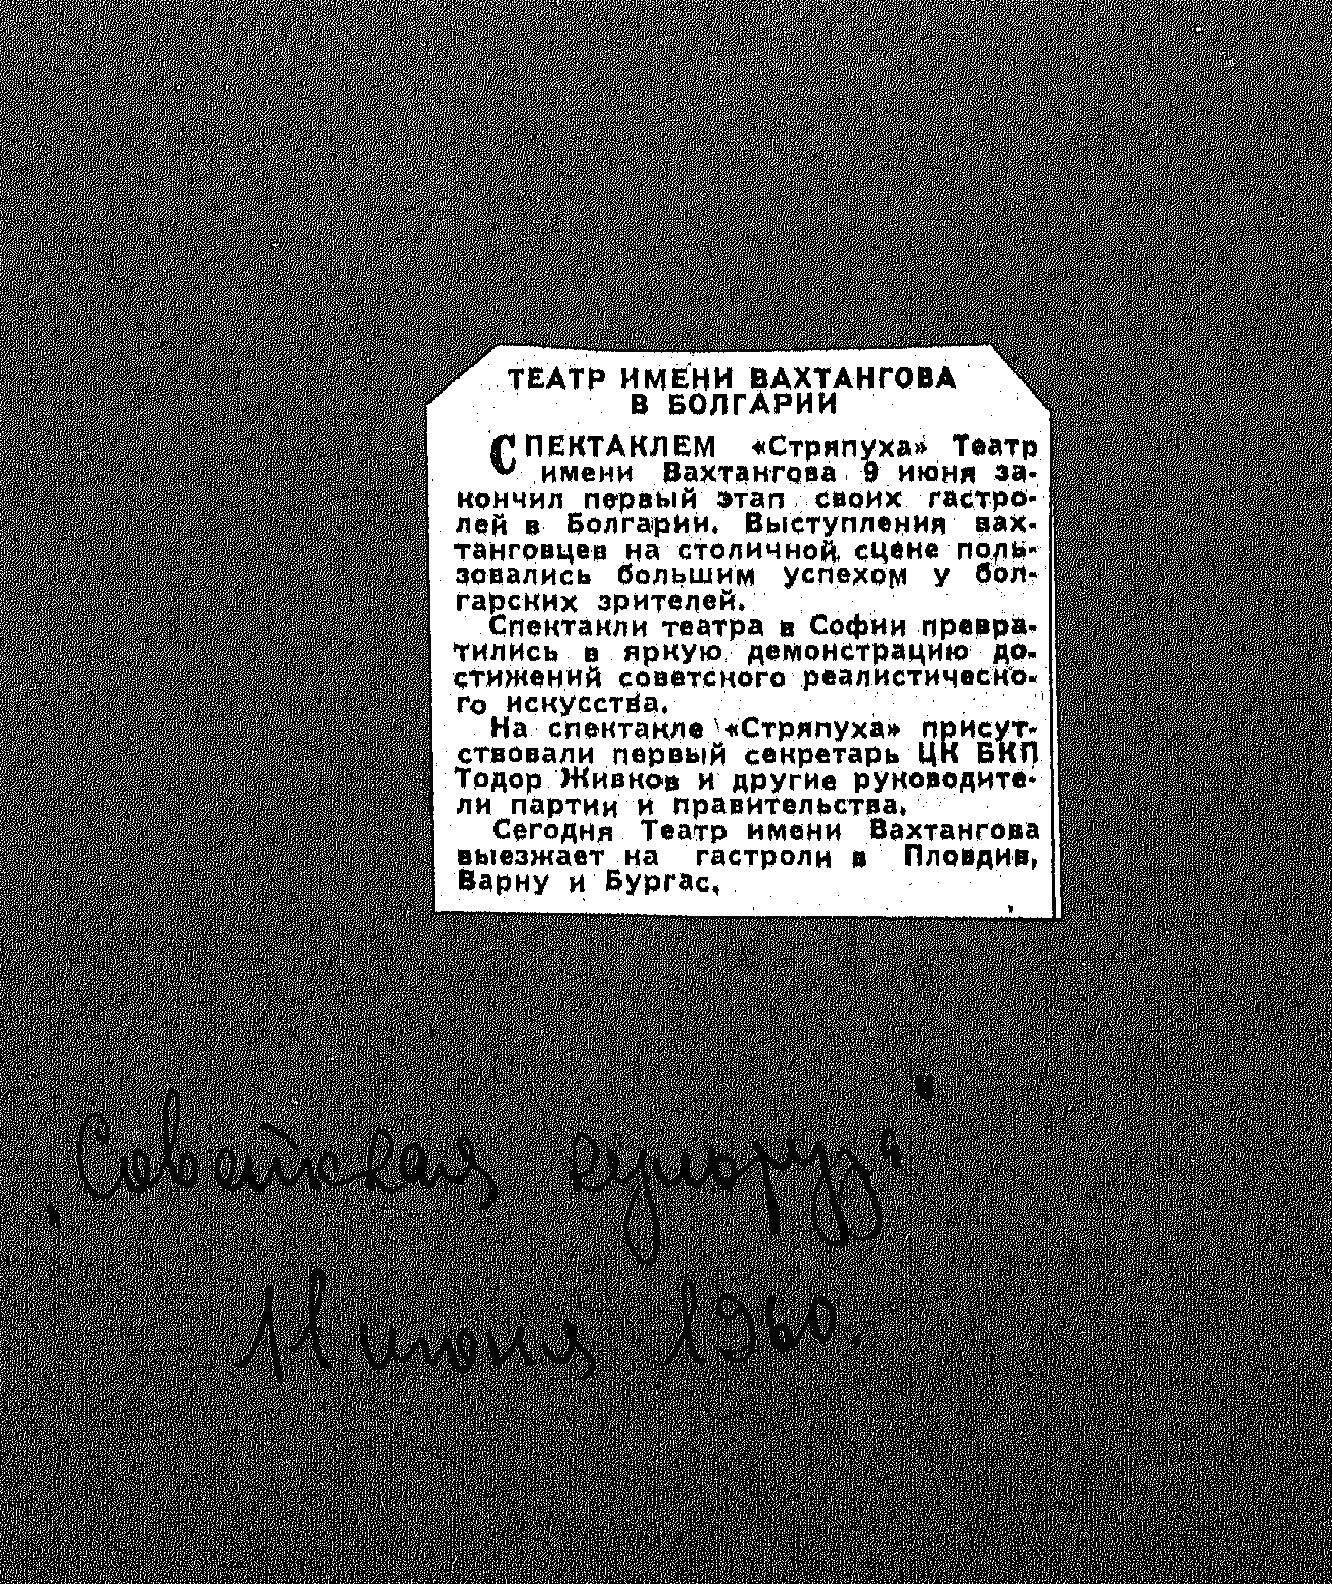 ТЕАТР ИМЕНИ ВАХТАНГОВА
В БОЛГАРИИ
СПЕКТАКЛЕМ «Стряпуха» Театр
имени Вахтангова 9 июня за-
кончил первый этап своих гастро-
лей в Болгарии. Выступления вах-
танговцев на столичной сцене поль-
зовались большим успехом у бол-
гарских зрителей.
Спектакли театра в Софии превра-
тились в яркую демонстрацию до-
стижений советского реалистическо-
го искусства.
На спектакле «Стряпуха» присут-
ствовали первый секретарь ЦК БКП
Тодор Живков и другие руководите-
ли партии и правительства.
Сегодня Театр имени Вахтангова
выезжает на гастроли в Пловдив,
Варну и Бургас.
„Советская культура"
11 июня 1960.